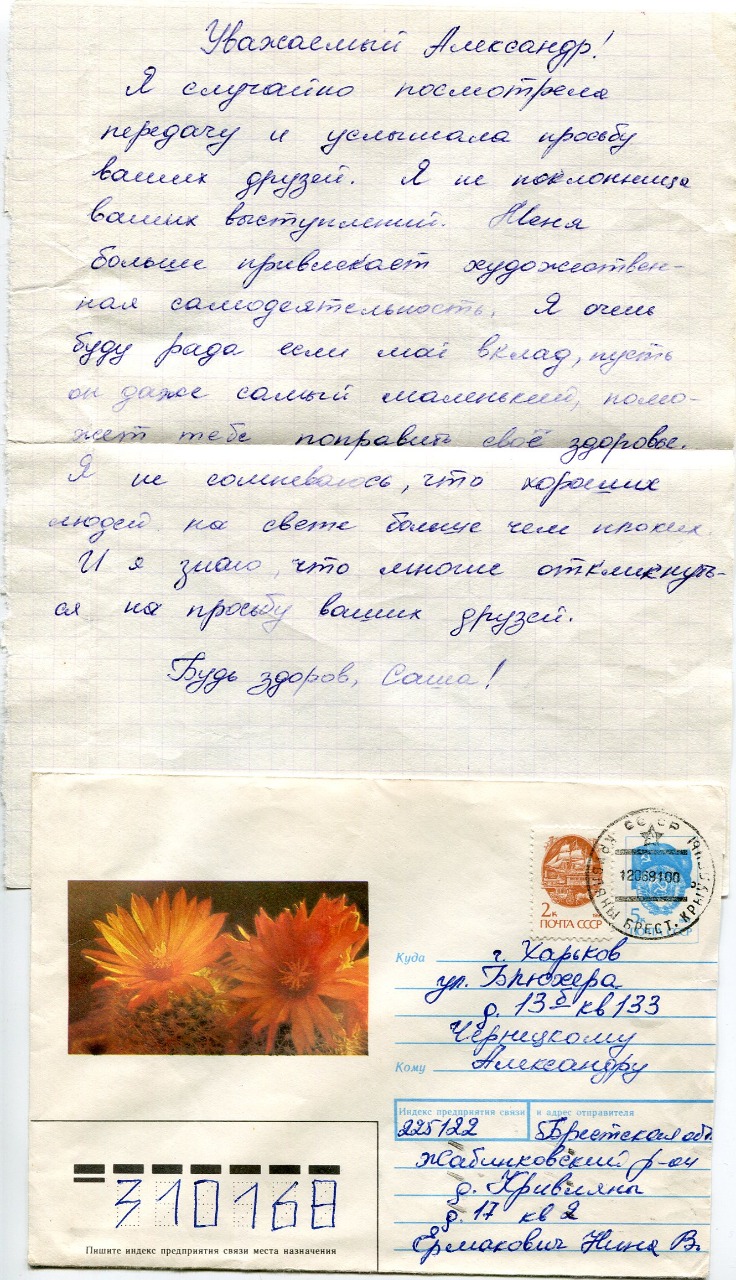 Уважаемый Александр!
Я случайно посмотрела
передачу и услышала просьбу
ваших друзей. Я не поклонница
ваших выступлений. Меня
больше привлекает художествен-
ная самодеятельность. Я очень
буду рада если мой вклад, пусть
он даже самый маленький, помо-
жет тебе поправить своё здоровье.
Я не сомневаюсь, что хороших
людей на свете больше чем плохих.
И я знаю, что многие откликнуть-
ся на просьбу ваших друзей.
Будь здоров, Саша!
СССР
12069100
БРЕСТ.
2к
ПОЧТА СССР
5к
ПОЧТА СССР
Куда г. Харьков
ул. Блюхера
д. 13б кв 133
Черницкому
Кому Александру
Индекс предприятия связи и адрес отправителя
225122 Брестская обл.
Жабинковский р-он
д. Кривляны
д. 17 кв 2
Ермакович Нина В.
310168
Пишите индекс предприятия связи места назначения